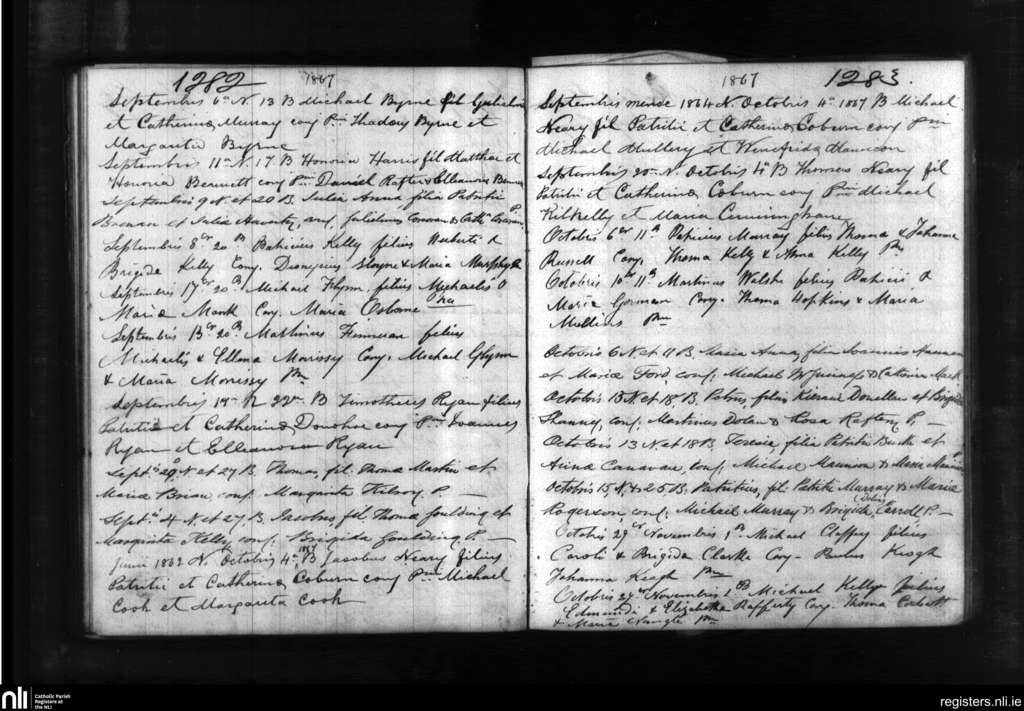 1282
1867
Septembris 6 N. 13 B Michael Byrne fil Gulielmi
et Catherina Murray conj Pm Thadory Byrne et
Margarita Byrne
Septembris 11 N. 17 B Honoria Harris fil Matthai et
Honoria Bennett conj Pm Daniel Rafter & Elleanora
Septembris 9 N. et 20 B. Julia Anna filia Patritii
et Julia conj.
Septembris 8 20 B Patricius Kelly filius Huberti &
Brigida Kelly Conj. Dionysius & Maria Murphy
Septembris 17 20 B. Michael Flynn filius Michaelis &
Maria Monk Conj. Maria Osborne
Septembris 13 20 B Finneran filius
Michaelis & Ellena Morissy Conj. Michael Glynn
& Maria Morrissy Pm
Septembris N 22 B Timotheus Ryan filius
Patritii et Catherina Donohoe conj Pm Joannes
Ryan et Elleanora Ryan
Sept. 20 N. et 27 B. Thomas, fil. Thoma Martin et
Maria Brien conj. Margarita Kilroy P. —
Sept. 4 N. et 27 B. Jacobus, fil. Thoma Goulding et
Margarita Kelly, conj. Brigida Goulding P. —
June 1862 N. Octobris 4 B Jacobus Neary filius
Patritii et Catherina Coburn conj Pm Michael
Cook et Margarita Cook
1867
1283.
Septembris mense 1864 N. Octobris 4 1867 B Michael
Neary fil Patritii et Catherina Coburn conj Pm
Michael Mullery et Winefrida Mannion
Septembris 20 N. Octobris 4 B Thomas Neary fil
Patritii et Catherina Coburn conj Pm Michael
Kilkelly et Maria Cunningham
Octobris 6 11 B Patricius Murray filius Thoma & Johanna
Russell Conj. Thoma Kelly & Anna Kelly Pm
Octobris 10 11 B Martinus Walshe filius Patricii &
Maria Gorman Conj. Thoma Hopkins & Maria
Mullins Pm
Octobris 6 N. et 11 B. Maria Anna, filia Joannis Mannion
et Maria Ford, conj. Michael & Catherina
Octobris 13 N. et 18 B. filius Kieran Donellan et Brigida
Shanny, conj. Martinus Dolan & Rosa Raftery P. —
Octobris 13 N. et 18 B. Teresia, filia Patritii Burke et
Anna Canavan, conj. Michael Mannion & Maria
Octobris 15 N. & 25 B. Patritius, fil. Patritii Murray & Maria
Rogerson, conj. Michael Murray & Brigida Carroll P. —
Octobris 29 Novembris 1 B Michael Claffey filius
Caroli & Brigida Clarke Conj. Keogh
Johanna Keogh Pm
Octobris 27 Novembris 1 B Michael Kelly filius
Edmundi & Elizabetha Rafferty Conj. Thoma
& Maria Pm
nli
Catholic Parish
Registers at
the NLI
registers.nli.ie